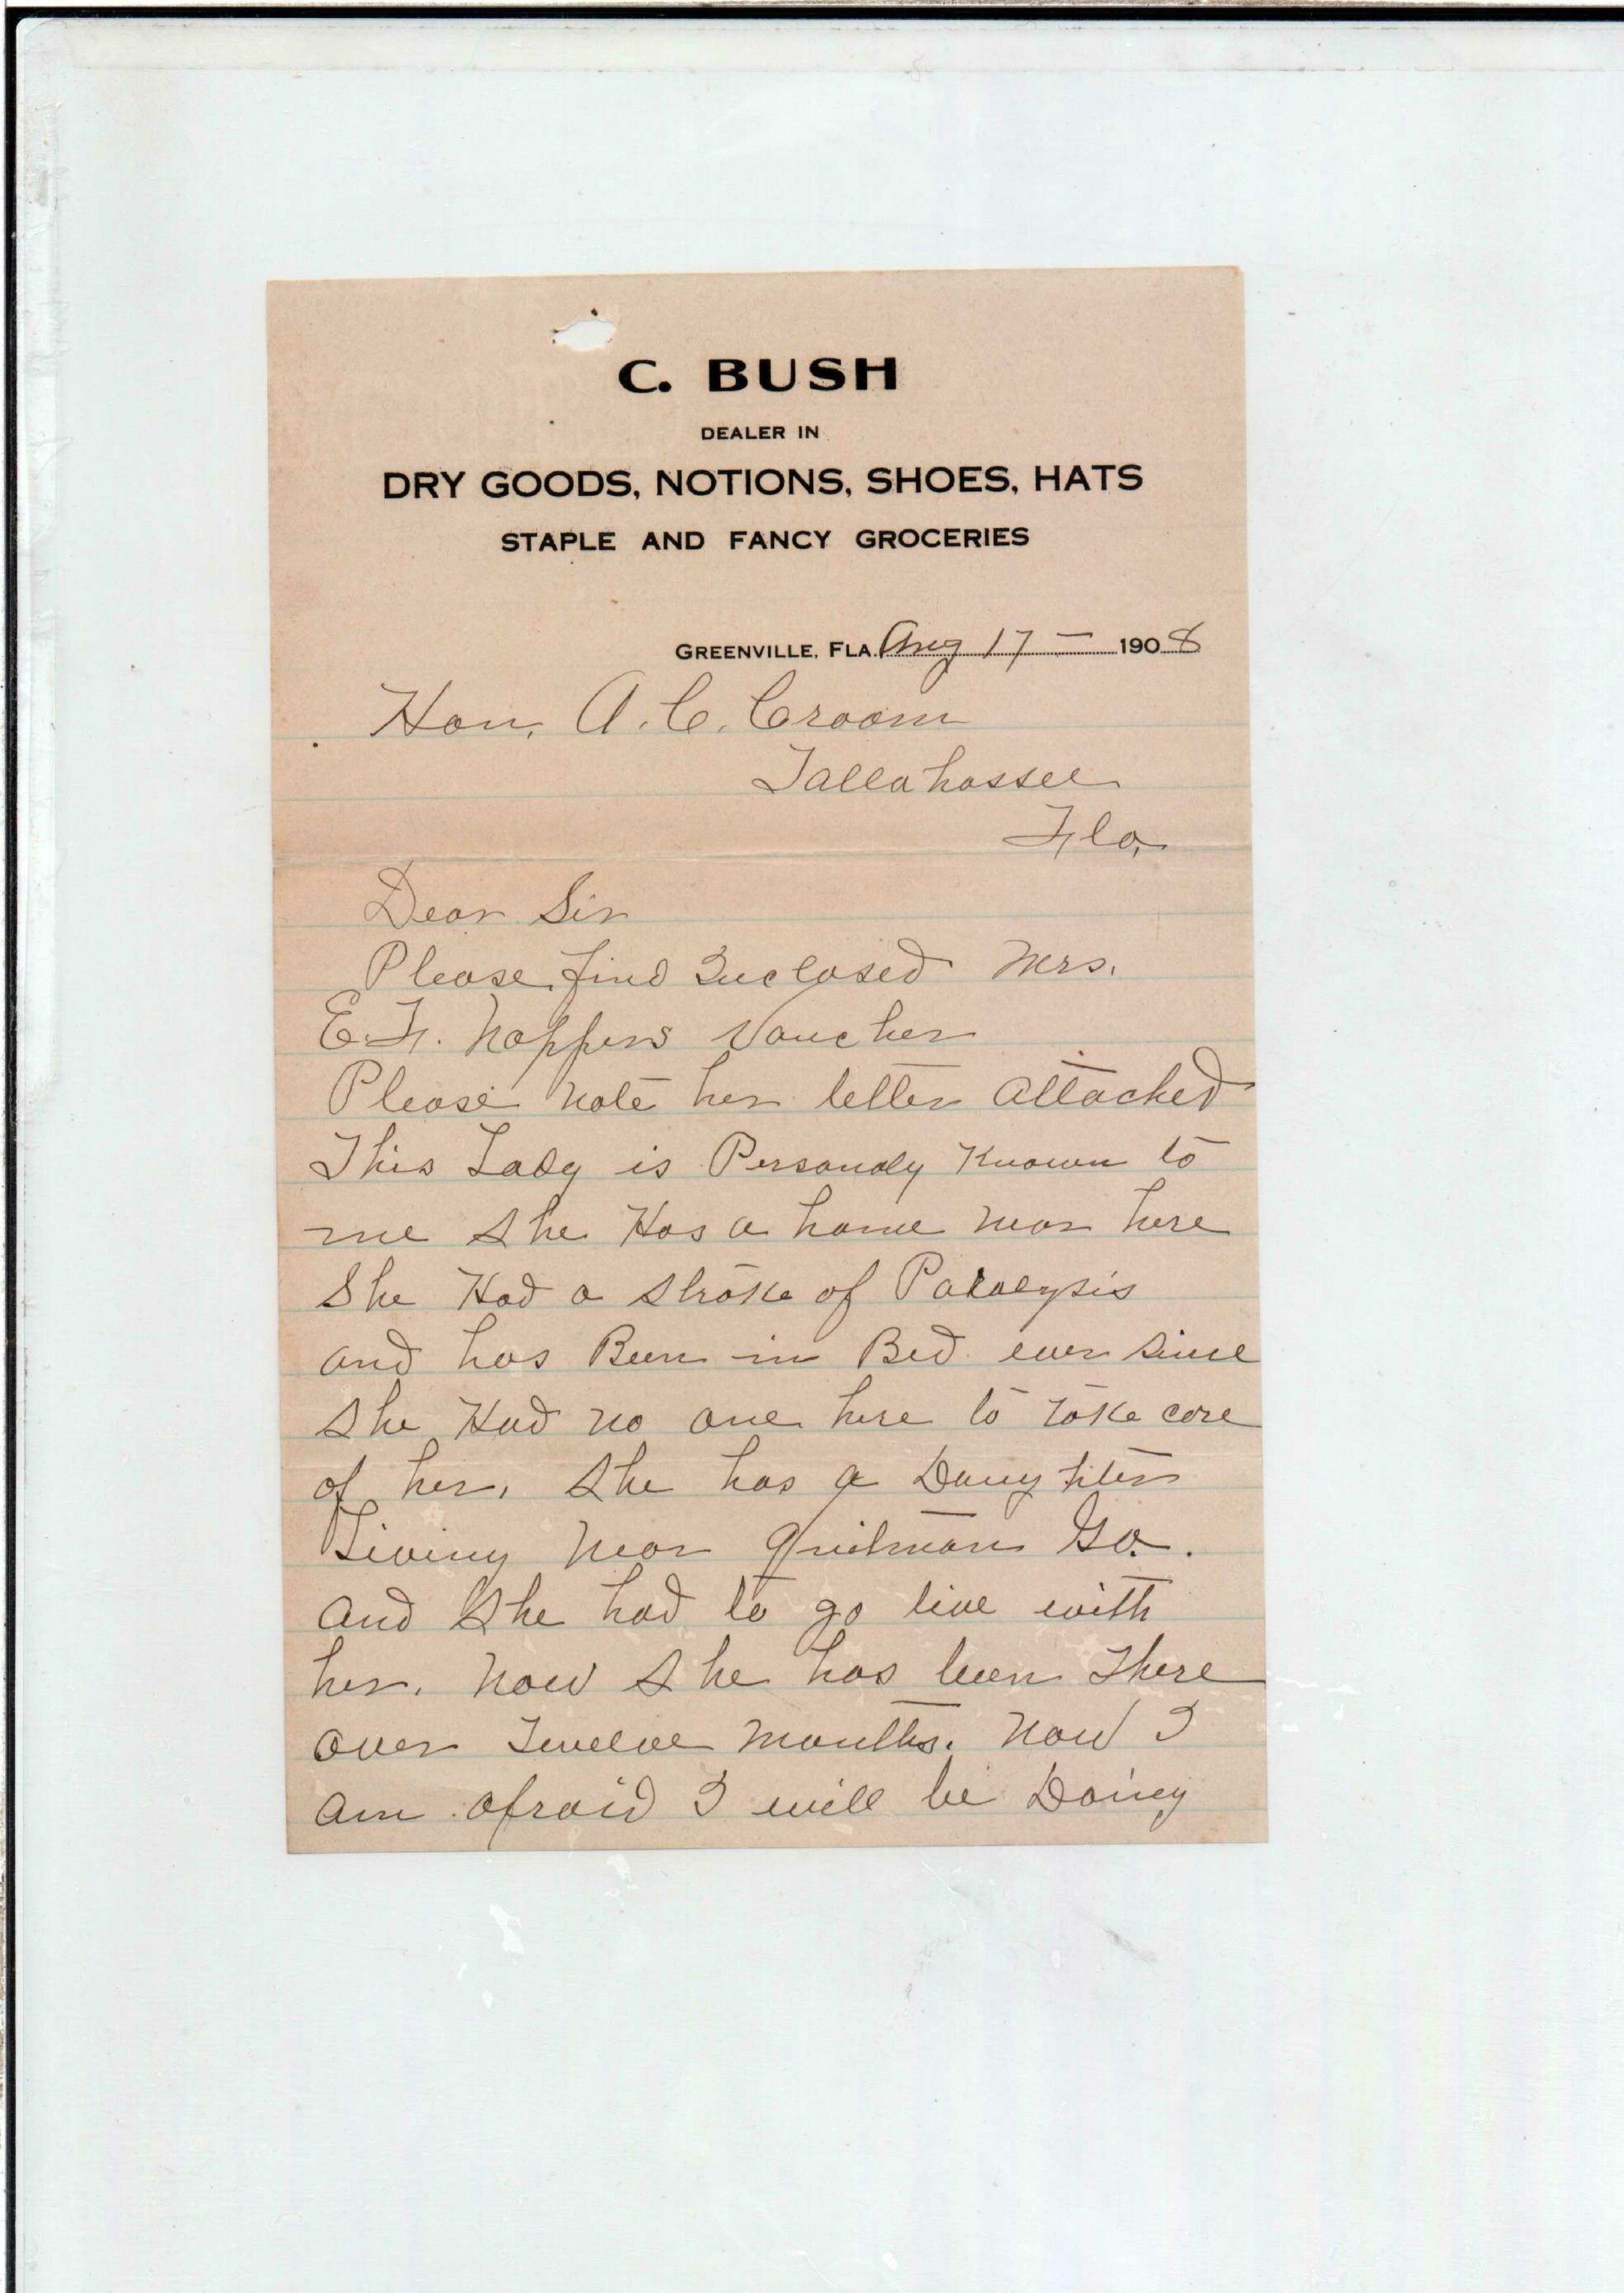 C. BUSH
DEALER IN
DRY GOODS, NOTIONS, SHOES, HATS
STAPLE AND FANCY GROCERIES
GREENVILLE, FLA. Aug 17 - 1908
Hon, A. C. Croom
Tallahassee
Fla,
Dear Sir
Please find Inclosed Mrs.
E. F. Voucher
Please note her letter attached
This Lady is Personaly Known to
me She Has a home near here
She Had a Stroke of Paralysis
and has Been in Bed ever since
She Had no one here to take care
of her, She has a Daughter
Living near Quitman Ga.
and She had to go live with
her. now She has been There
over Twelve months. now I
am afraid I will be Doing